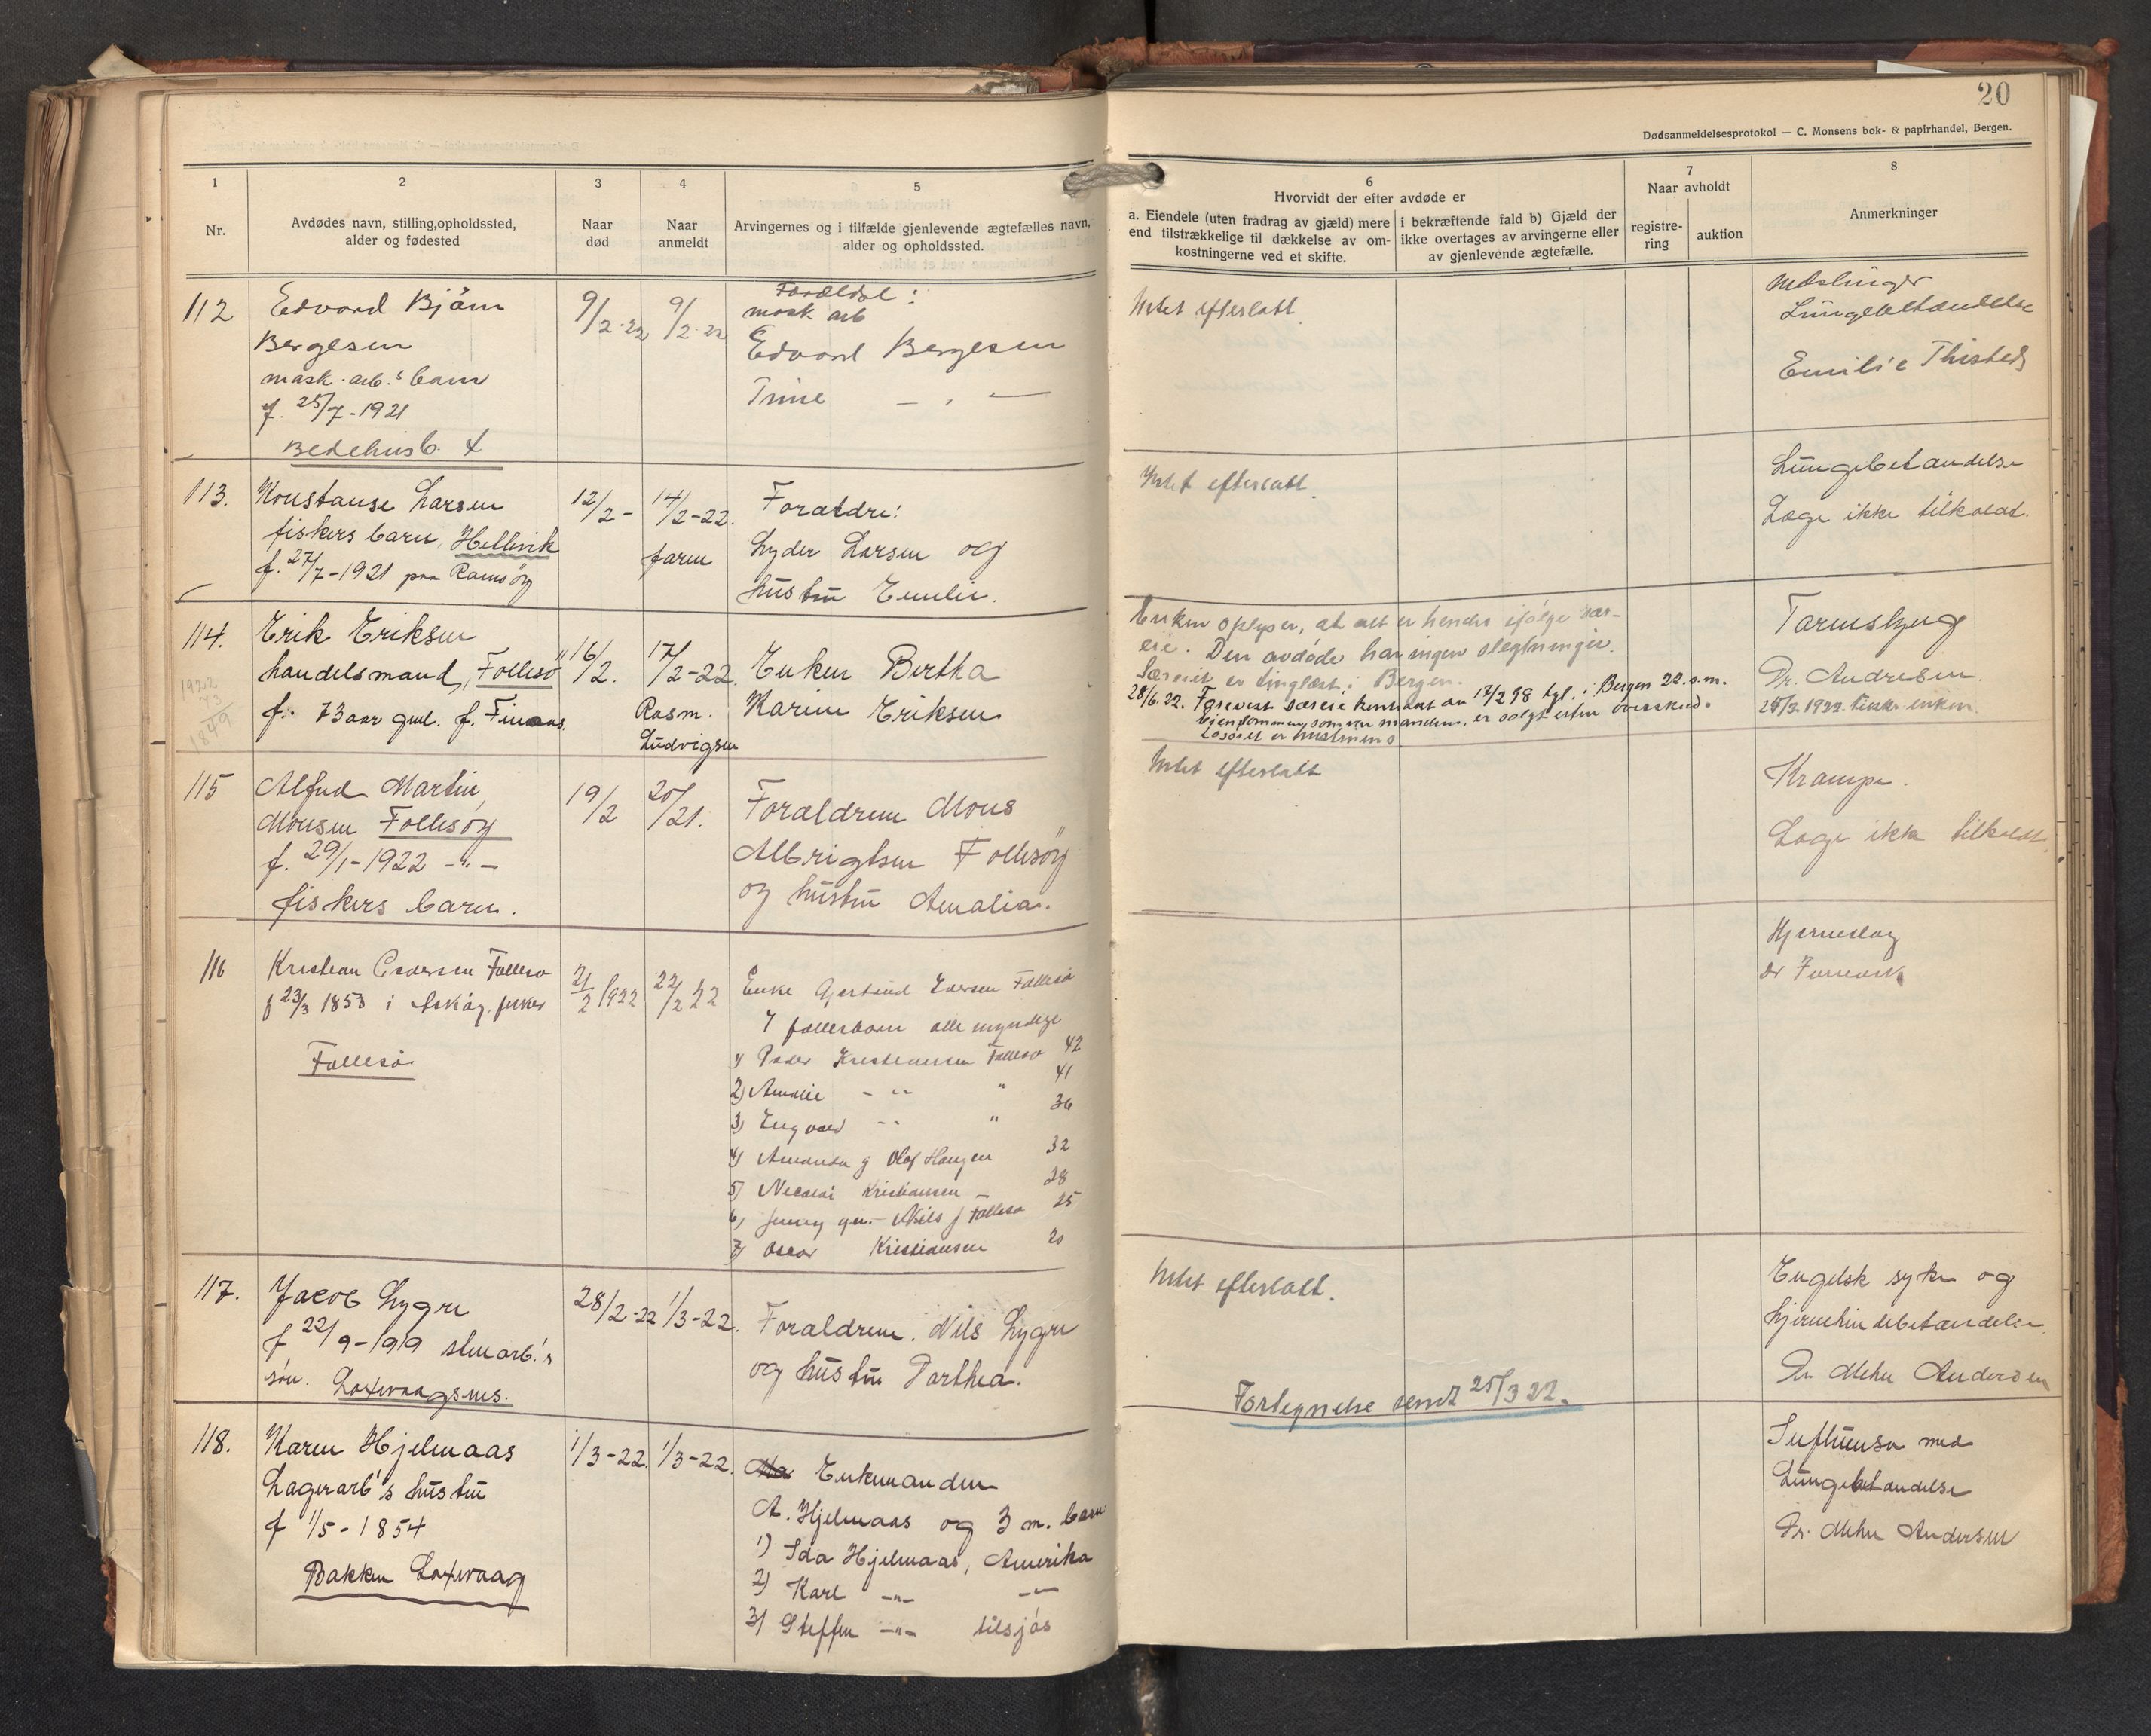 20
Dødsanmeldelsesprotokol — C. Monsens bok- & papirhandel, Bergen.
1
2
3
4
5
6
7
8
Nr.
Avdødes navn, stilling, opholdssted,
alder og fødested
Naar
død
Naar
anmeldt
Arvingernes og i tilfælde gjenlevende ægtefælles navn,
alder og opholdssted.
Hvorvidt der efter avdøde er
a. Eiendele (uten fradrag av gjæld) mere
end tilstrækkelige til dækkelse av om-
kostningerne ved et skifte.
i bekræftende fald b) Gjæld der
ikke overtages av arvingerne eller
av gjenlevende ægtefælle.
Naar avholdt
registre-
ring
auktion
Anmerkninger
112
Edvard Bjørn
Bergesen
mask. arb.s barn
f. 25/7-1921
Bedehusb. 4
9/2-22
9/2-22
Forældre:
mask arb
Edvard Bergesen
Trine — " —
Intet efterlatt
Meslinger
Lungebetændelse
Emilie Thisted
113.
Konstanse Larsen
fiskers barn, Hellevik
f. 27/7-1921 paa Ramsøy
12/2-
14/2-22.
faren
Forældre:
Lyder Larsen og
hustru Emilie.
Intet efterlatt.
Lungebetændelse
Læge ikke tilkaldt.
114.
Erik Eriksen
handelsmand, Follesø
f. 73 aar gml. f. Finaas.
1922
73
1849
16/2.
17/2-22.
Rasm.
Ludvigsen
Enken Bertha
Karine Eriksen
Enken oplyser, at alt er hendes ifølge sær-
eie. Den avdøde har ingen slegtninger.
Særeiet er tinglæst i Bergen.
28/6.22. Forevist særeie kontrakt av 17/2 98 tgl. i Bergen 22. s.m.
Eiendommen, som var mandens, er solgt uten overskud.
Løsøret er hustruens
Tarmslyng
Dr. Andresen.
115
Alfred Martin
Monsen Follesøy
f. 29/1-1922 -"-
fiskers barn.
19/2
20/21.
Forældrene Mons
Albrigtsen Follesøy
og hustru Amalia.
Intet efterlatt
Krampe.
Læge ikke tilkaldt.
116
Kristian Pedersen Follesø
f 23/3 1853 i Askøy, fisker
Follesø
21/2 1922
22/2 22
Enke Gjertrud Iversen Follesø
7 fællesbarn alle myndige
1) Peder Kristiansen Follesø 42
2) Amalie - " - " 41
3) Ingvald - " - " 36
4) Amanda g Olaf Haugen 32
5) Nicolai Kristiansen — 28
6) Jenny g.m. Nils J Follesø 25
7) Oscar Kristiansen 20
Hjerneslag
117.
Jacob Lygre
f 22/9-1919 stenarb.'s
søn. Laxevaagsnes.
28/2-22
1/3-22.
Forældrene. Nils Lygre
og hustru Parthea.
Intet efterlatt.
Engelsk syke og
hjernehindebetændelse.
Dr. Meher Andersen
118.
Karen Hjelmaas
Lagerarb's hustru
f 1/5-1854
Bakken Laxevaag
1/3-22.
1/3-22.
Enkemanden
A. Hjelmaas og 3 m. barn:
1) Ida Hjelmaas, Amerika
2) Karl -"- -"-
3) Steffen -"- tilsjøs
Fortegnelse sendt 25/3 22.
Influensa med
Lungebetændelse
Dr. Meher Andersen